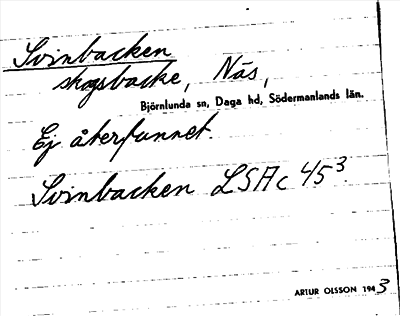 Svinbacken
skogsbacke, Näs,
Björnlunda sn, Daga hd, Södermanlands län.
Ej återfunnet.
Svinbacken LSA c 45³.
ARTUR OLSSON 1943